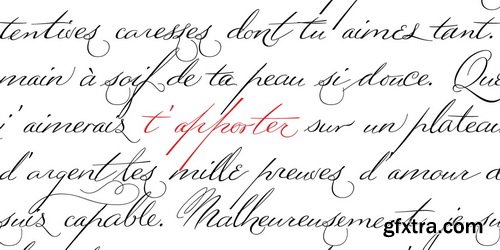 tentives caresses dont tu aimes tant.
main à soif de ta peau si douce. Que
j'aimerais t'apporter sur un plateau
d'argent les mille preuves d'amour d
suis capable. Malheureusement, je su
gfxtra.com